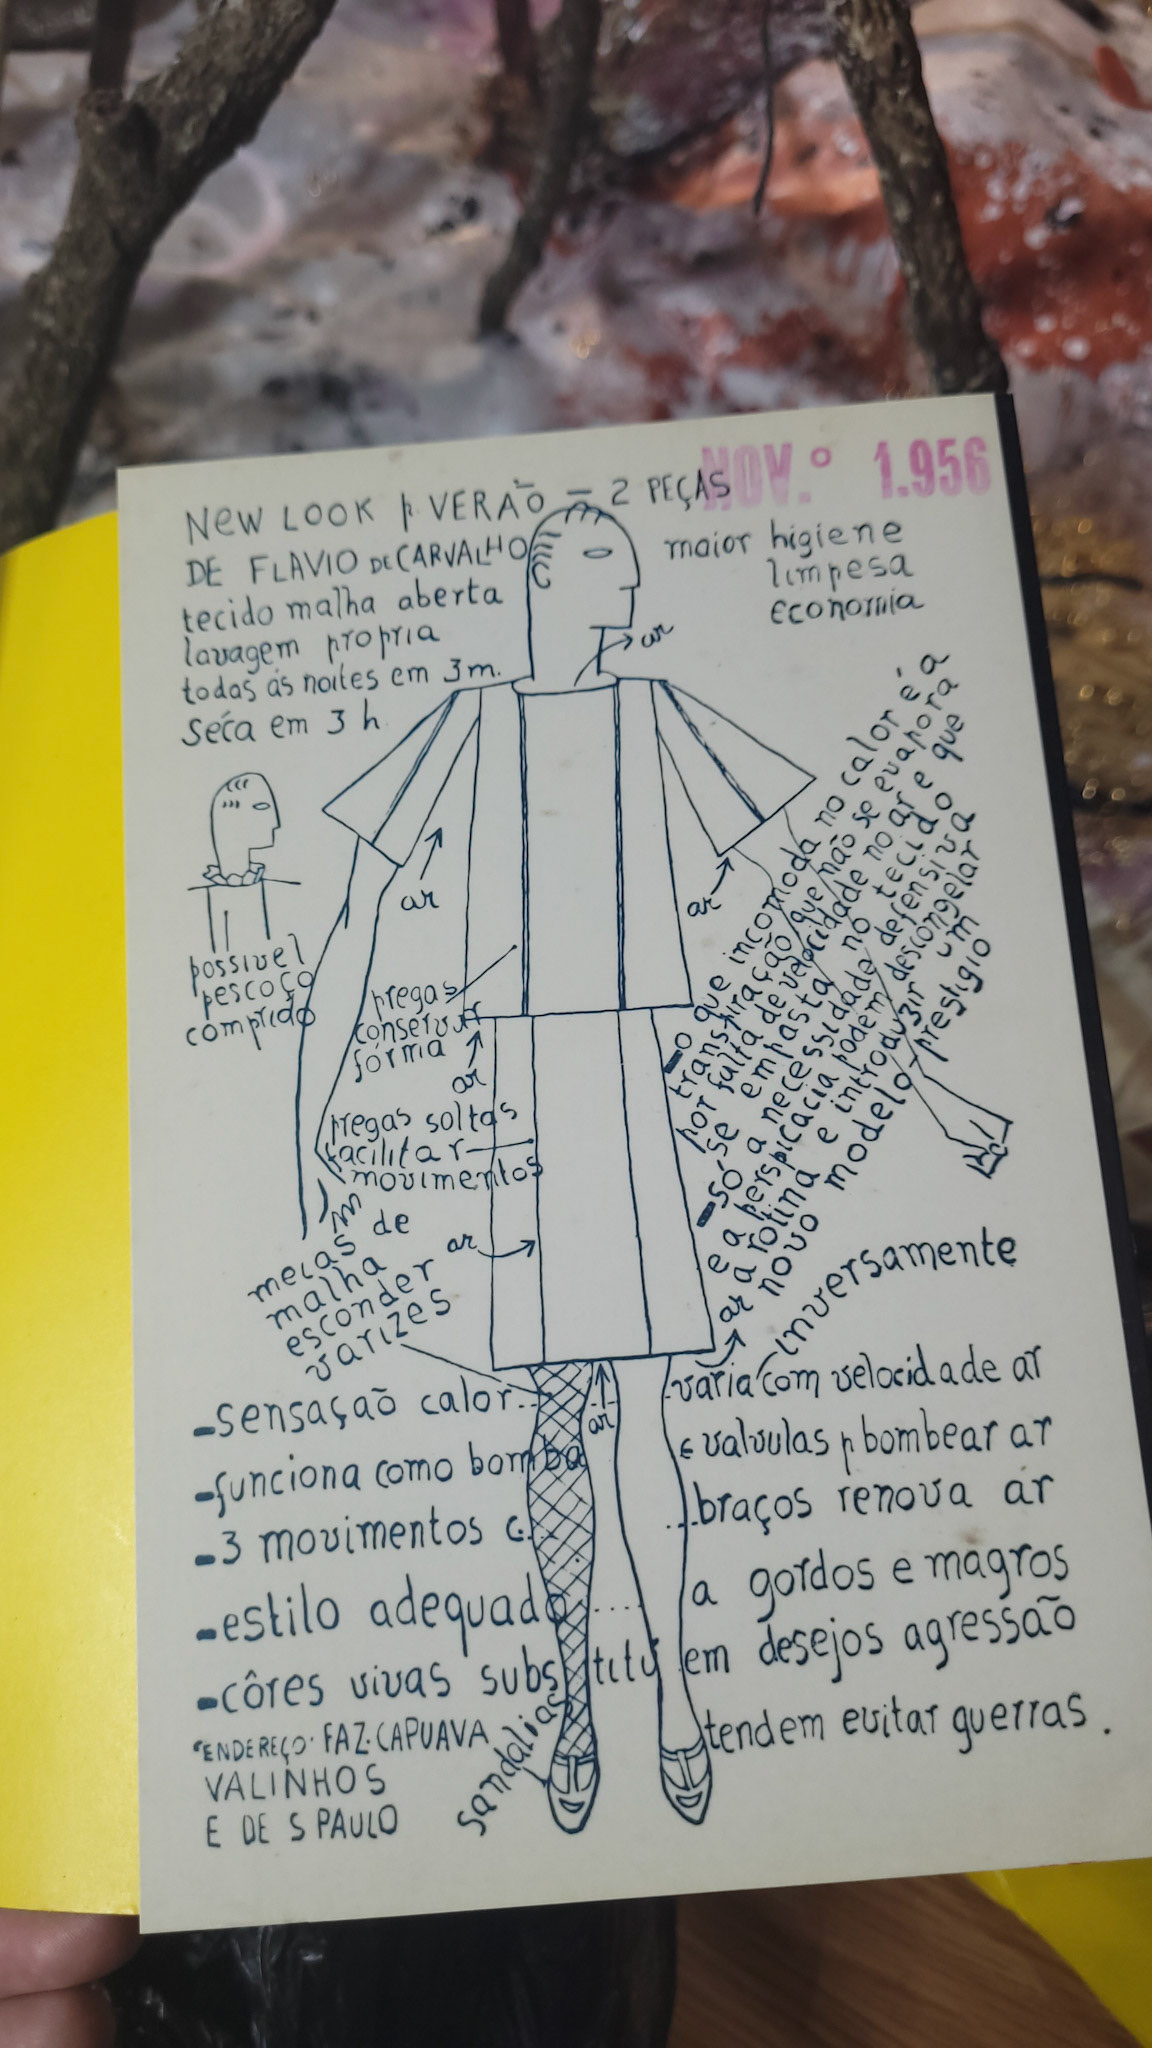 NOV.º 1.956
NEW LOOK p. VERÃO = 2 PEÇAS
DE FLAVIO DE CARVALHO
tecido malha aberta
lavagem propria
todas ás noites em 3m.
séca em 3 h
maior higiene
limpesa
economia
ar
possivel
pescoço
comprido
ar
ar
pregas
conservar
fórma
ar
pregas soltas
facilitar
movimentos
ar
meias de
malha
esconder
varizes
-o que incomoda no calor é a
transpiração que não se evapora
por falta de velocidade no ar e que
se empasta no tecido
-só a necessidade defensiva
e a perspicacia podem descongelar
a rotina e introduzir um
novo modelo-prestigio
ar
inversamente
-sensação calor... varia com velocidade ar
ar
-funciona como bomba c valvulas p bombear ar
-3 movimentos c... ...braços renova ar
-estilo adequado.... a gordos e magros
-côres vivas substituem desejos agressão
tendem evitar guerras.
ENDEREÇO· FAZ. CAPUAVA
VALINHOS
E DE S PAULO
sandalias